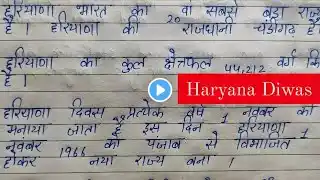 हरियाणा भारत का 20 वां सबसे बड़ा राज्
है । हरियाणा की राजधानी चंडीगढ़ है ।
हरियाणा का कुल क्षेत्रफल 44,212 वर्ग कि
है ।
Haryana Diwas
हरियाणा दिवस प्रत्येक वर्ष 1 नवंबर को
मनाया जाता है इस दिन हरियाणा 1
नवंबर 1966 को पंजाब से विभाजित
होकर नया राज्य बना ।